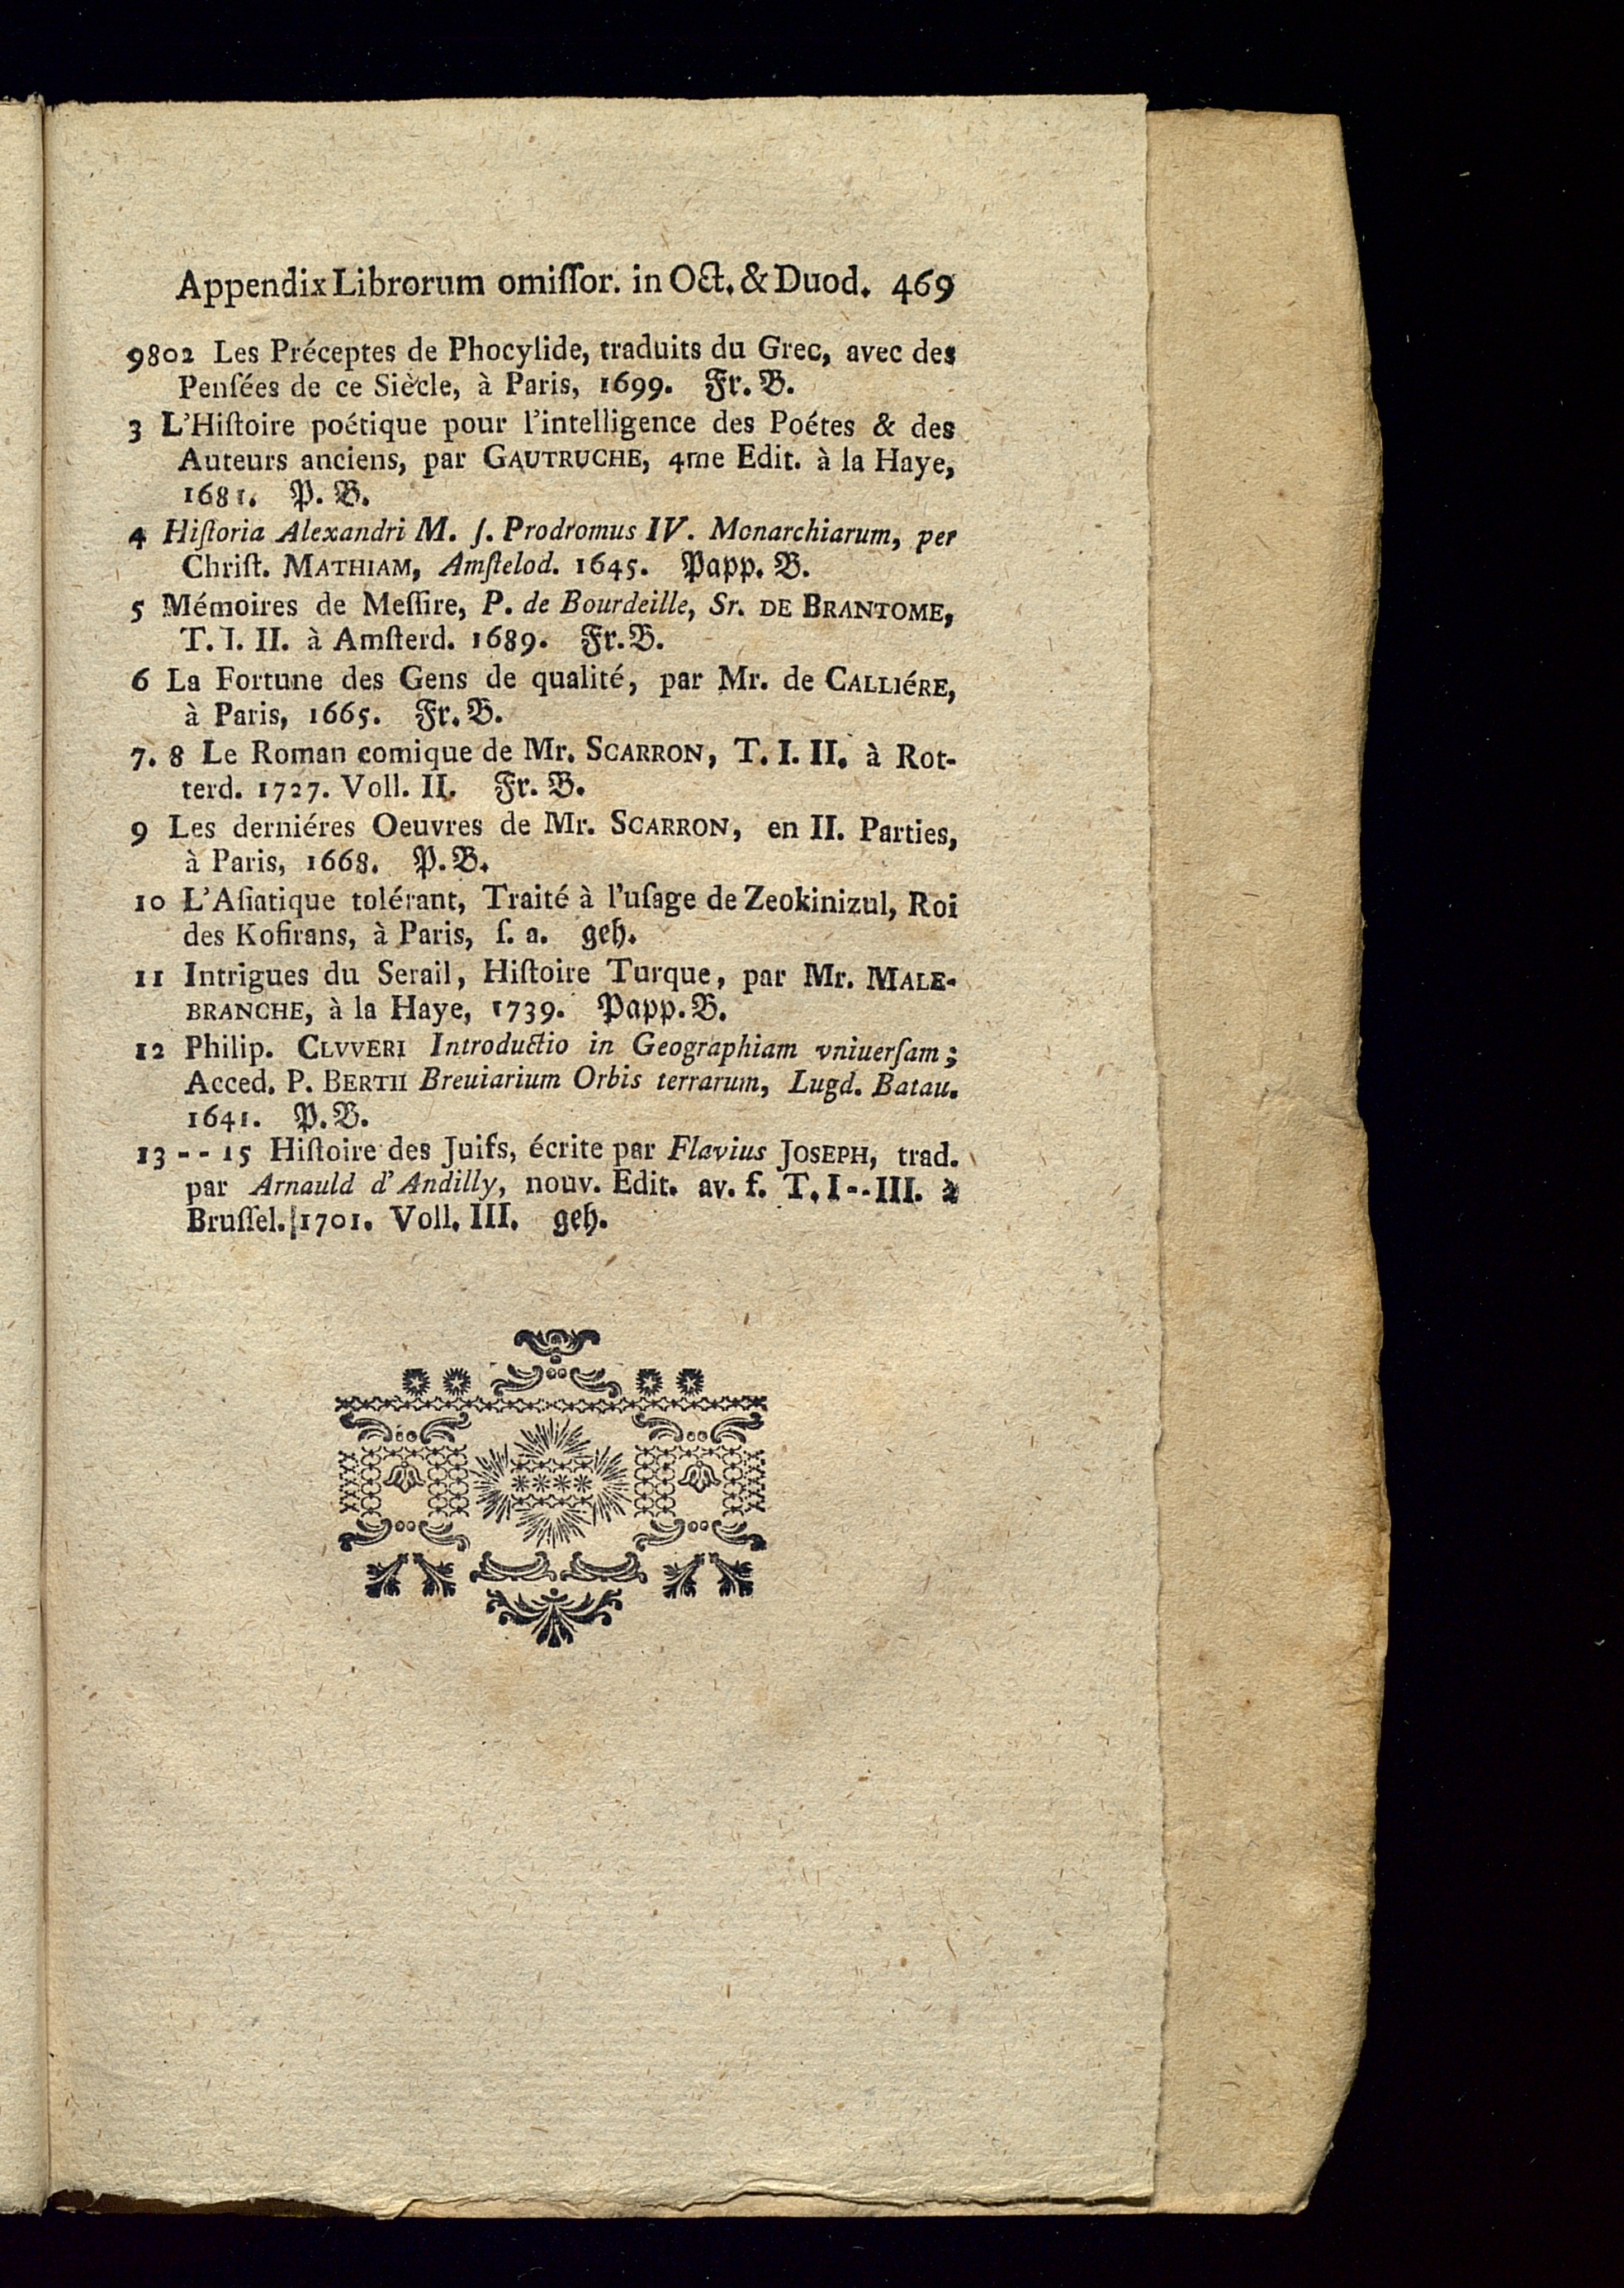 Appendix Librorum omiſſor. in Oct. & Duod. 469
9802 Les Préceptes de Phocylide, traduits du Grec, avec des
Penſées de ce Siècle, à Paris, 1699. Fr. B.
3 L'Hiſtoire poétique pour l'intelligence des Poétes & des
Auteurs anciens, par GAUTRUCHE, 4me Edit. à la Haye,
1681. P. B.
4 Hiſtoria Alexandri M. ſ. Prodromus IV. Monarchiarum, per
Chriſt. MATHIAM, Amſtelod. 1645. Papp. B.
5 Mémoires de Meſſire, P. de Bourdeille, Sr. DE BRANTOME,
T. I. II. à Amſterd. 1689. Fr. B.
6 La Fortune des Gens de qualité, par Mr. de CALLIéRE,
à Paris, 1665. Fr. B.
7. 8 Le Roman comique de Mr. SCARRON, T. I. II. à Rot-
terd. 1727. Voll. II. Fr. B.
9 Les derniéres Oeuvres de Mr. SCARRON, en II. Parties,
à Paris, 1668. P. B.
10 L'Aſiatique tolérant, Traité à l'uſage de Zeokinizul, Roi
des Kofirans, à Paris, ſ. a. geh.
11 Intrigues du Serail, Hiſtoire Turque, par Mr. MALE-
BRANCHE, à la Haye, 1739. Papp. B.
12 Philip. CLVVERI Introductio in Geographiam vniuerſam;
Acced. P. BERTII Breuiarium Orbis terrarum, Lugd. Batau.
1641. P. B.
13 - - 15 Hiſtoire des Juifs, écrite par Flavius JOSEPH, trad.
par Arnauld d'Andilly, nouv. Edit. av. f. T. I - - III. à
Bruſſel. 1701. Voll. III. geh.